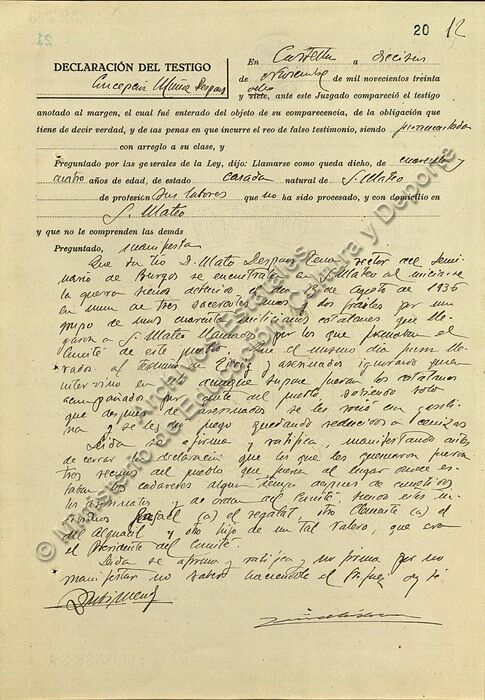 20 12
DECLARACIÓN DEL TESTIGO
Concepción Despons
En Castellón a dieciseis
de noviembre de mil novecientos treinta
ocho
y siete, ante este Juzgado compareció el testigo
anotado al margen, el cual fué enterado del objeto de su comparecencia, de la obligación que
tiene de decir verdad, y de las penas en que incurre el reo de falso testimonio, siendo juramentada
con arreglo a su clase, y
Preguntado por las generales de la Ley, dijo: Llamarse como queda dicho, de cuarenta y
cuatro años de edad, de estado casada natural de S. Mateo
de profesión sus labores que no ha sido procesado, y con domicilio en
S. Mateo
y que no le comprenden las demás
Preguntado, manifiesta
Que su tio D. Mateo Despons Tena, rector del Semi-
nario de Burgos se encontraba en S. Mateo al iniciarse
la guerra siendo detenido el dia 13 de Agosto de 1936
en union de tres sacerdotes mas y dos frailes por un
grupo de unos cuarenta milicianos catalanes que lle-
garon a S. Mateo llamados por los que formaban el
Comité de este pueblo. Que el mismo dia fueron lle-
vados al termino de y asesinados ignorando quien
intervino en aunque supone fueron los catalanes
acompañados por gente del pueblo sabiendo solo
que despues de asesinados se les roció con gasoli-
na y se les dió fuego quedando reducidos a cenizas
Leida se afirma y ratifica, manifestando antes
de cerrar la declaración que los que los quemaron fueron
tres vecinos del pueblo que fueron al lugar donde es-
taban los cadaveres algun tiempo despues de cometidos
los asesinatos y de orden del Comité, siendo estos in-
dividuos Rafael (a) el regalat, otro Clemente (a) el
del Alguacil y otro hijo de un tal Valero, que era
el Presidente del Comité.
Leida se afirma y ratifica y no firma por no
manifestar no saber haciendolo el Sr Juez doy fé
© Ministerio de Educación, Cultura y Deporte
Archivos Estatales